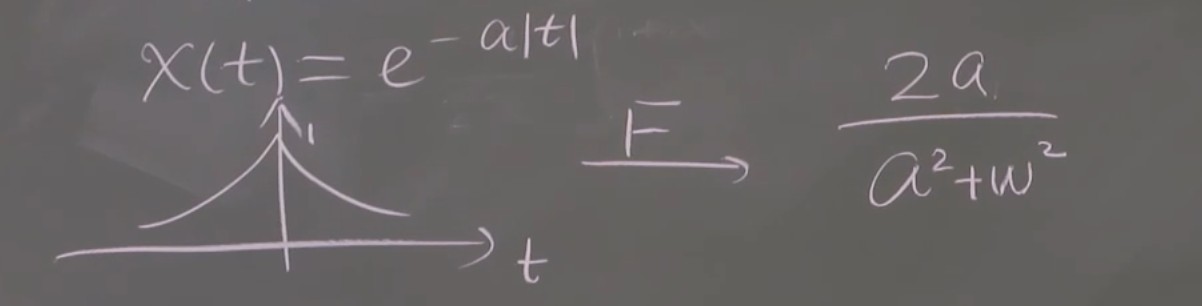 x(t) = e^{-a|t|}
1
t
F
2a
a²+w²